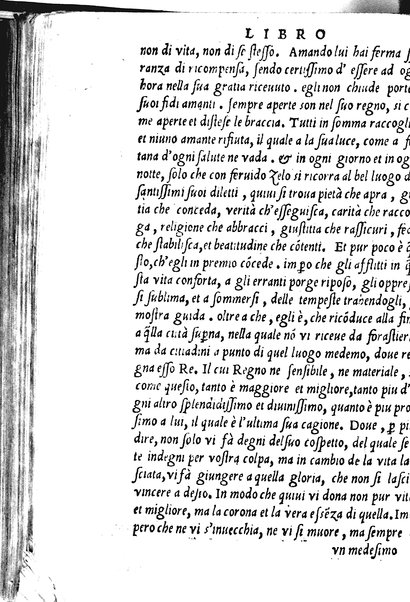 LIBRO
non di vita, non di se stesso. Amando lui hai ferma s
ranza di ricompensa, sendo certissimo d' essere ad og
hora nella sua gratia riceuuto. egli non chiude porte
suoi fidi amanti. sempre aperte son nel suo regno, si c
me aperte et distese le braccia. Tutti in somma raccogli
et niuno amante rifiuta, il quale a la sua luce, come a fo
tana d'ogni salute ne vada. & in ogni giorno et in og
notte, solo che con feruido zelo si ricorra al bel luogo d
santissimi suoi diletti, quiui si troua pietà che apra, g
tia che conceda, verità ch'esseguisca, carità che racco
ga, religione che abbracci, giustitia che rassicuri, fed
che stabilisca, et beatitudine che cõtenti. Et pur poco è q̃
sto, ch'egli in premio cõcede. imꝑo che gli afflitti in q̃
sta vita conforta, a gli erranti porge riposo, gli oppre
si sublima, et a sommersi, delle tempeste trahendogli,
mostra guida. oltre a che, egli è, che ricõduce alla fin
a q̃lla città suꝑna, nella quale nõ vi riceue da forastieri
ma da cittadini a punto di quel luogo medemo, doue re
gna esso Re. Il cui Regno ne sensibile, ne materiale,
come questo, tanto è maggiore et migliore, tanto piu d'
gni altro splendidissimo et diuinissimo, quanto è piu pro
simo a lui, il quale è l'ultima sua cagione. Doue, ꝑ pi
dire, non solo vi fà degni del suo cospetto, del quale se
te indegni per vostra colpa, ma in cambio de la vita la
sciata, vi fà giungere a quella gloria, che non si lasci
vincere a desio. In modo che quiui vi dona non pur vit
et migliore, ma la corona et la vera essẽza di quella. Im
pero che ne vi s'inuecchia, ne vi si muore, ma sempre
vn medesimo